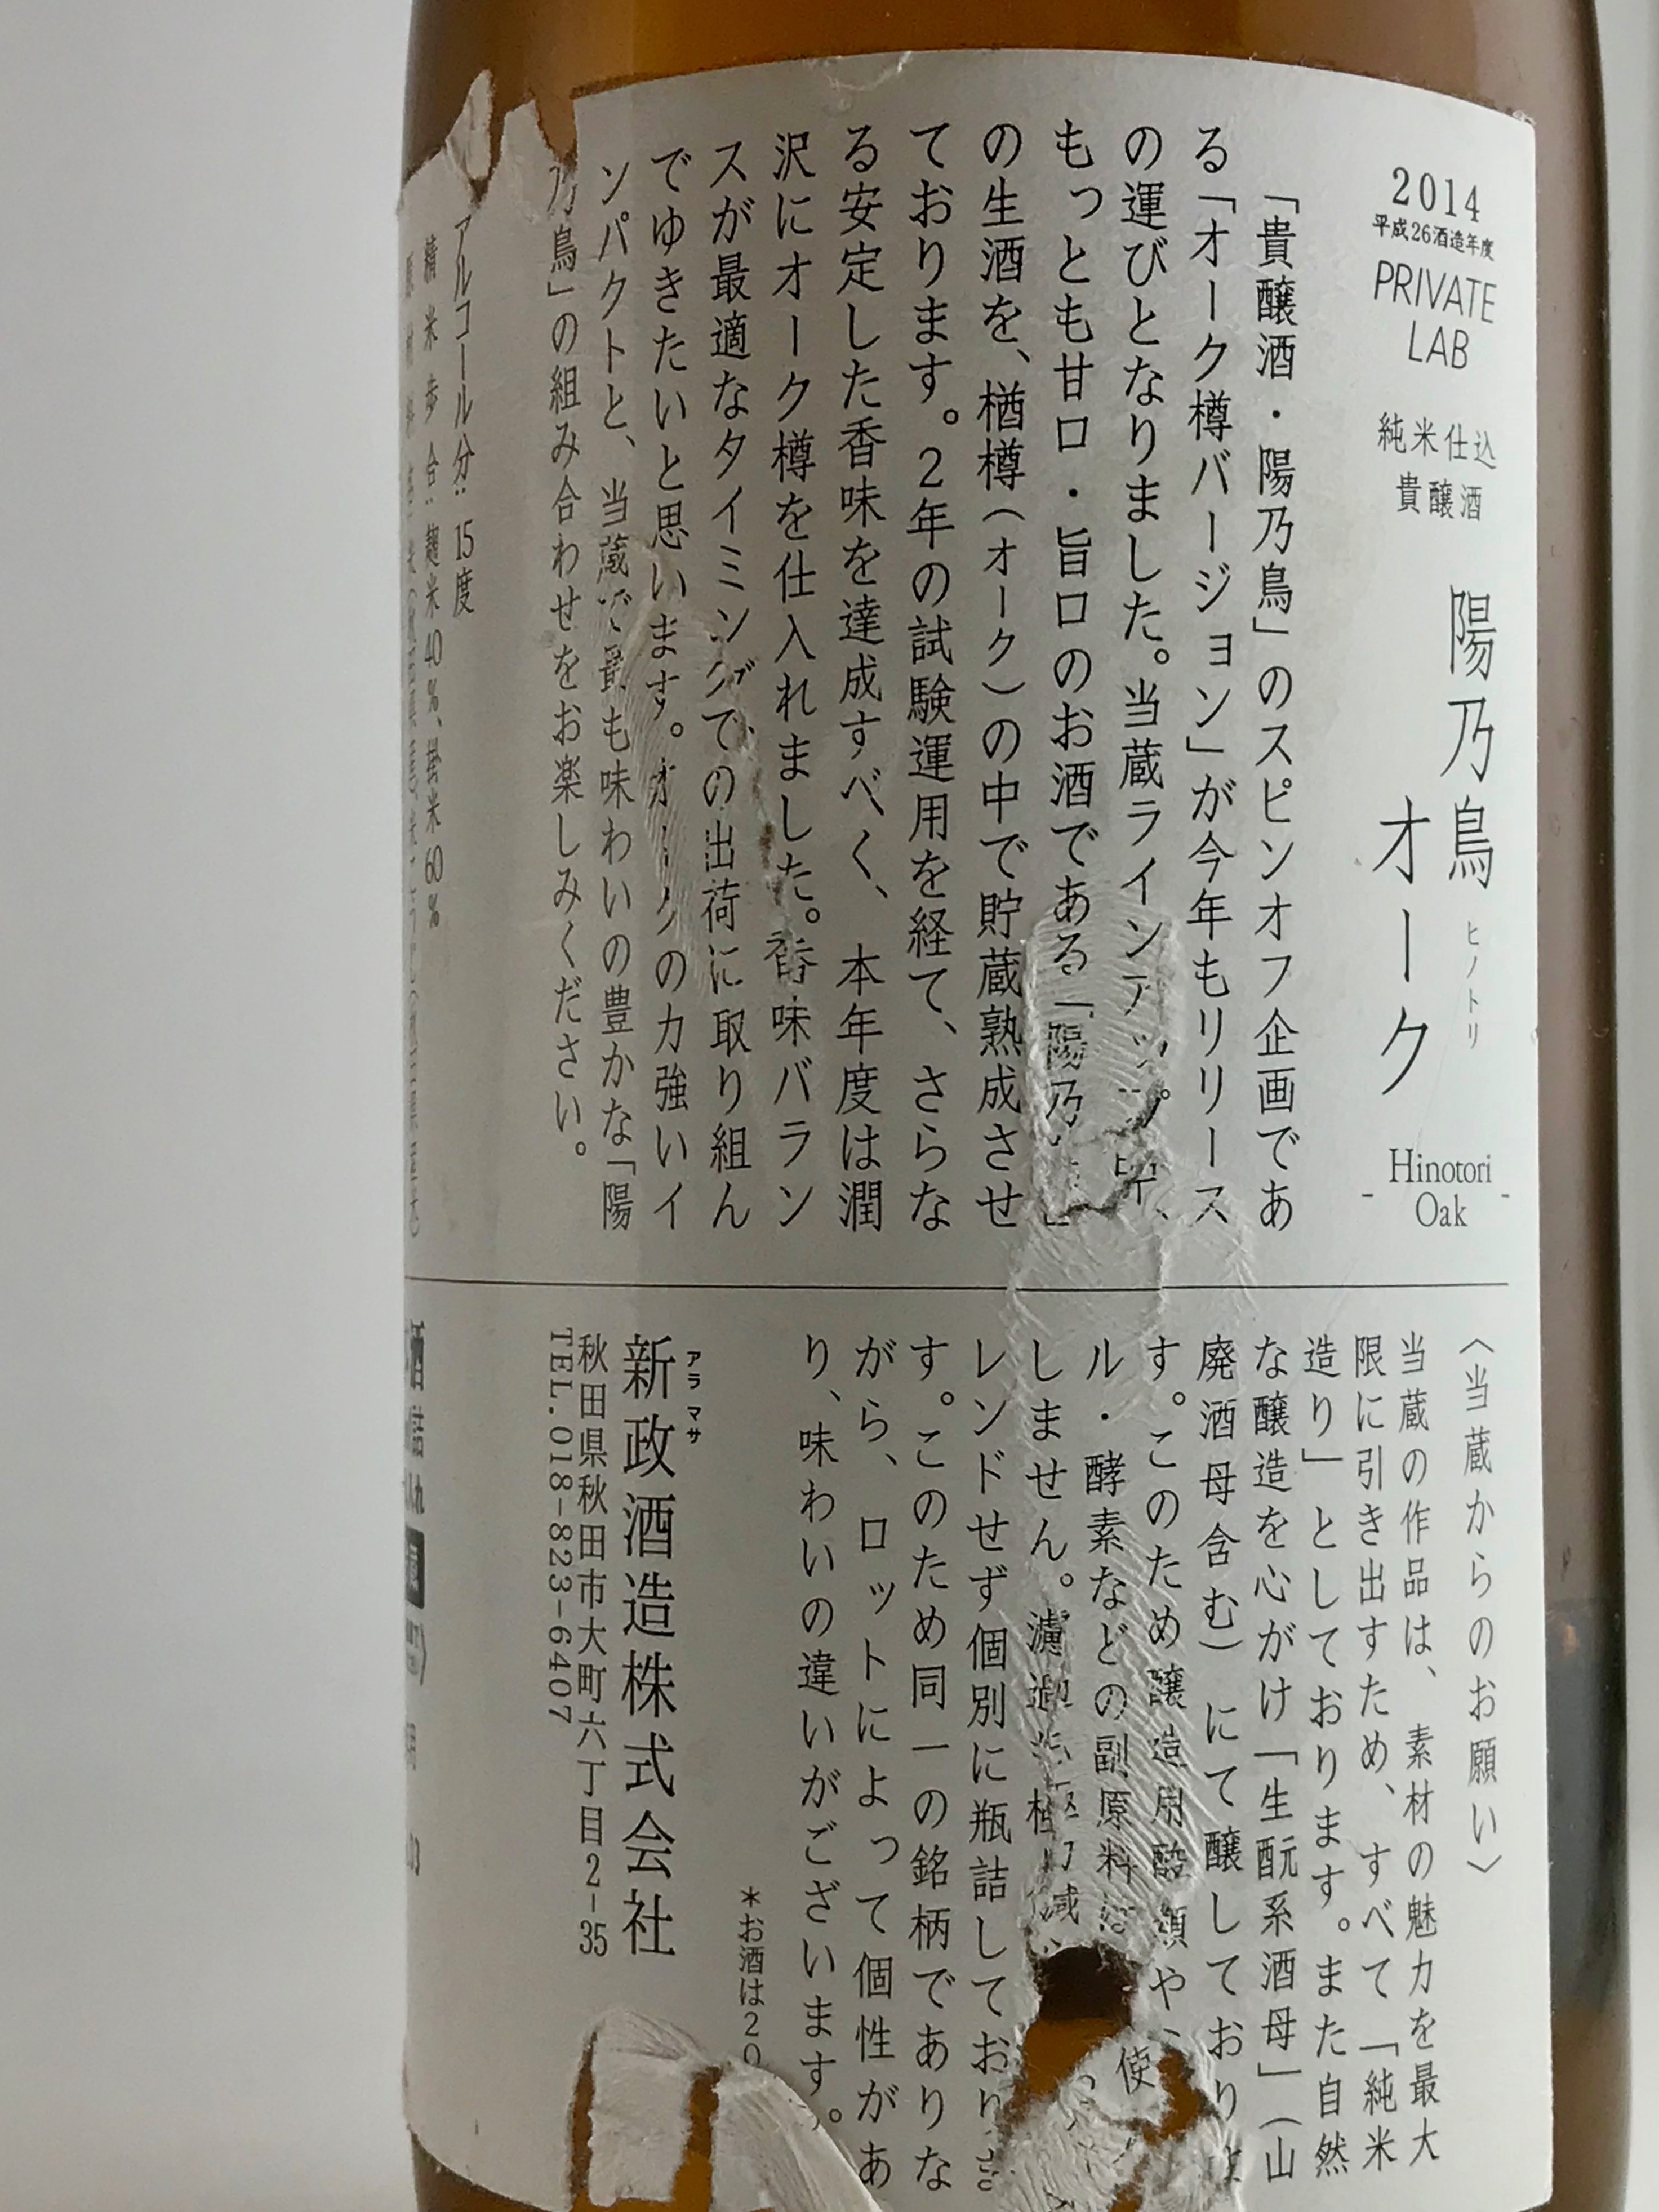 2014
平成26酒造年度
PRIVATE
LAB
純米仕込
貴醸酒
陽乃鳥
ヒノトリ
オーク
- Hinotori Oak -
「貴醸酒・陽乃鳥」のスピンオフ企画であ
る「オーク樽バージョン」が今年もリリース
の運びとなりました。当蔵ラインアップ中、
もっとも甘口・旨口のお酒である「陽乃鳥」
の生酒を、楢樽（オーク）の中で貯蔵熟成させ
ております。2年の試験運用を経て、さらな
る安定した香味を達成すべく、本年度は潤
沢にオーク樽を仕入れました。香味バラン
スが最適なタイミングでの出荷に取り組ん
でゆきたいと思います。オークの力強いイ
ンパクトと、当蔵で最も味わいの豊かな「陽
乃鳥」の組み合わせをお楽しみください。
アルコール分：15度
精米歩合：麹米40％、掛米60％
〈当蔵からのお願い〉
当蔵の作品は、素材の魅力を最大
限に引き出すため、すべて「純米
造り」としております。また自然
な醸造を心がけ「生酛系酒母」（山
廃酒母含む）にて醸しております
す。このため醸造用酸類や
ル・酵素などの副原料は 使
しません。濾過も極力
レンドせず個別に瓶詰しておりま
す。このため同一の銘柄でありな
がら、ロットによって個性があ
り、味わいの違いがございます。
＊お酒は20
アラマサ
新政酒造株式会社
秋田県秋田市大町六丁目2-35
TEL.018-823-6407
酒
詰